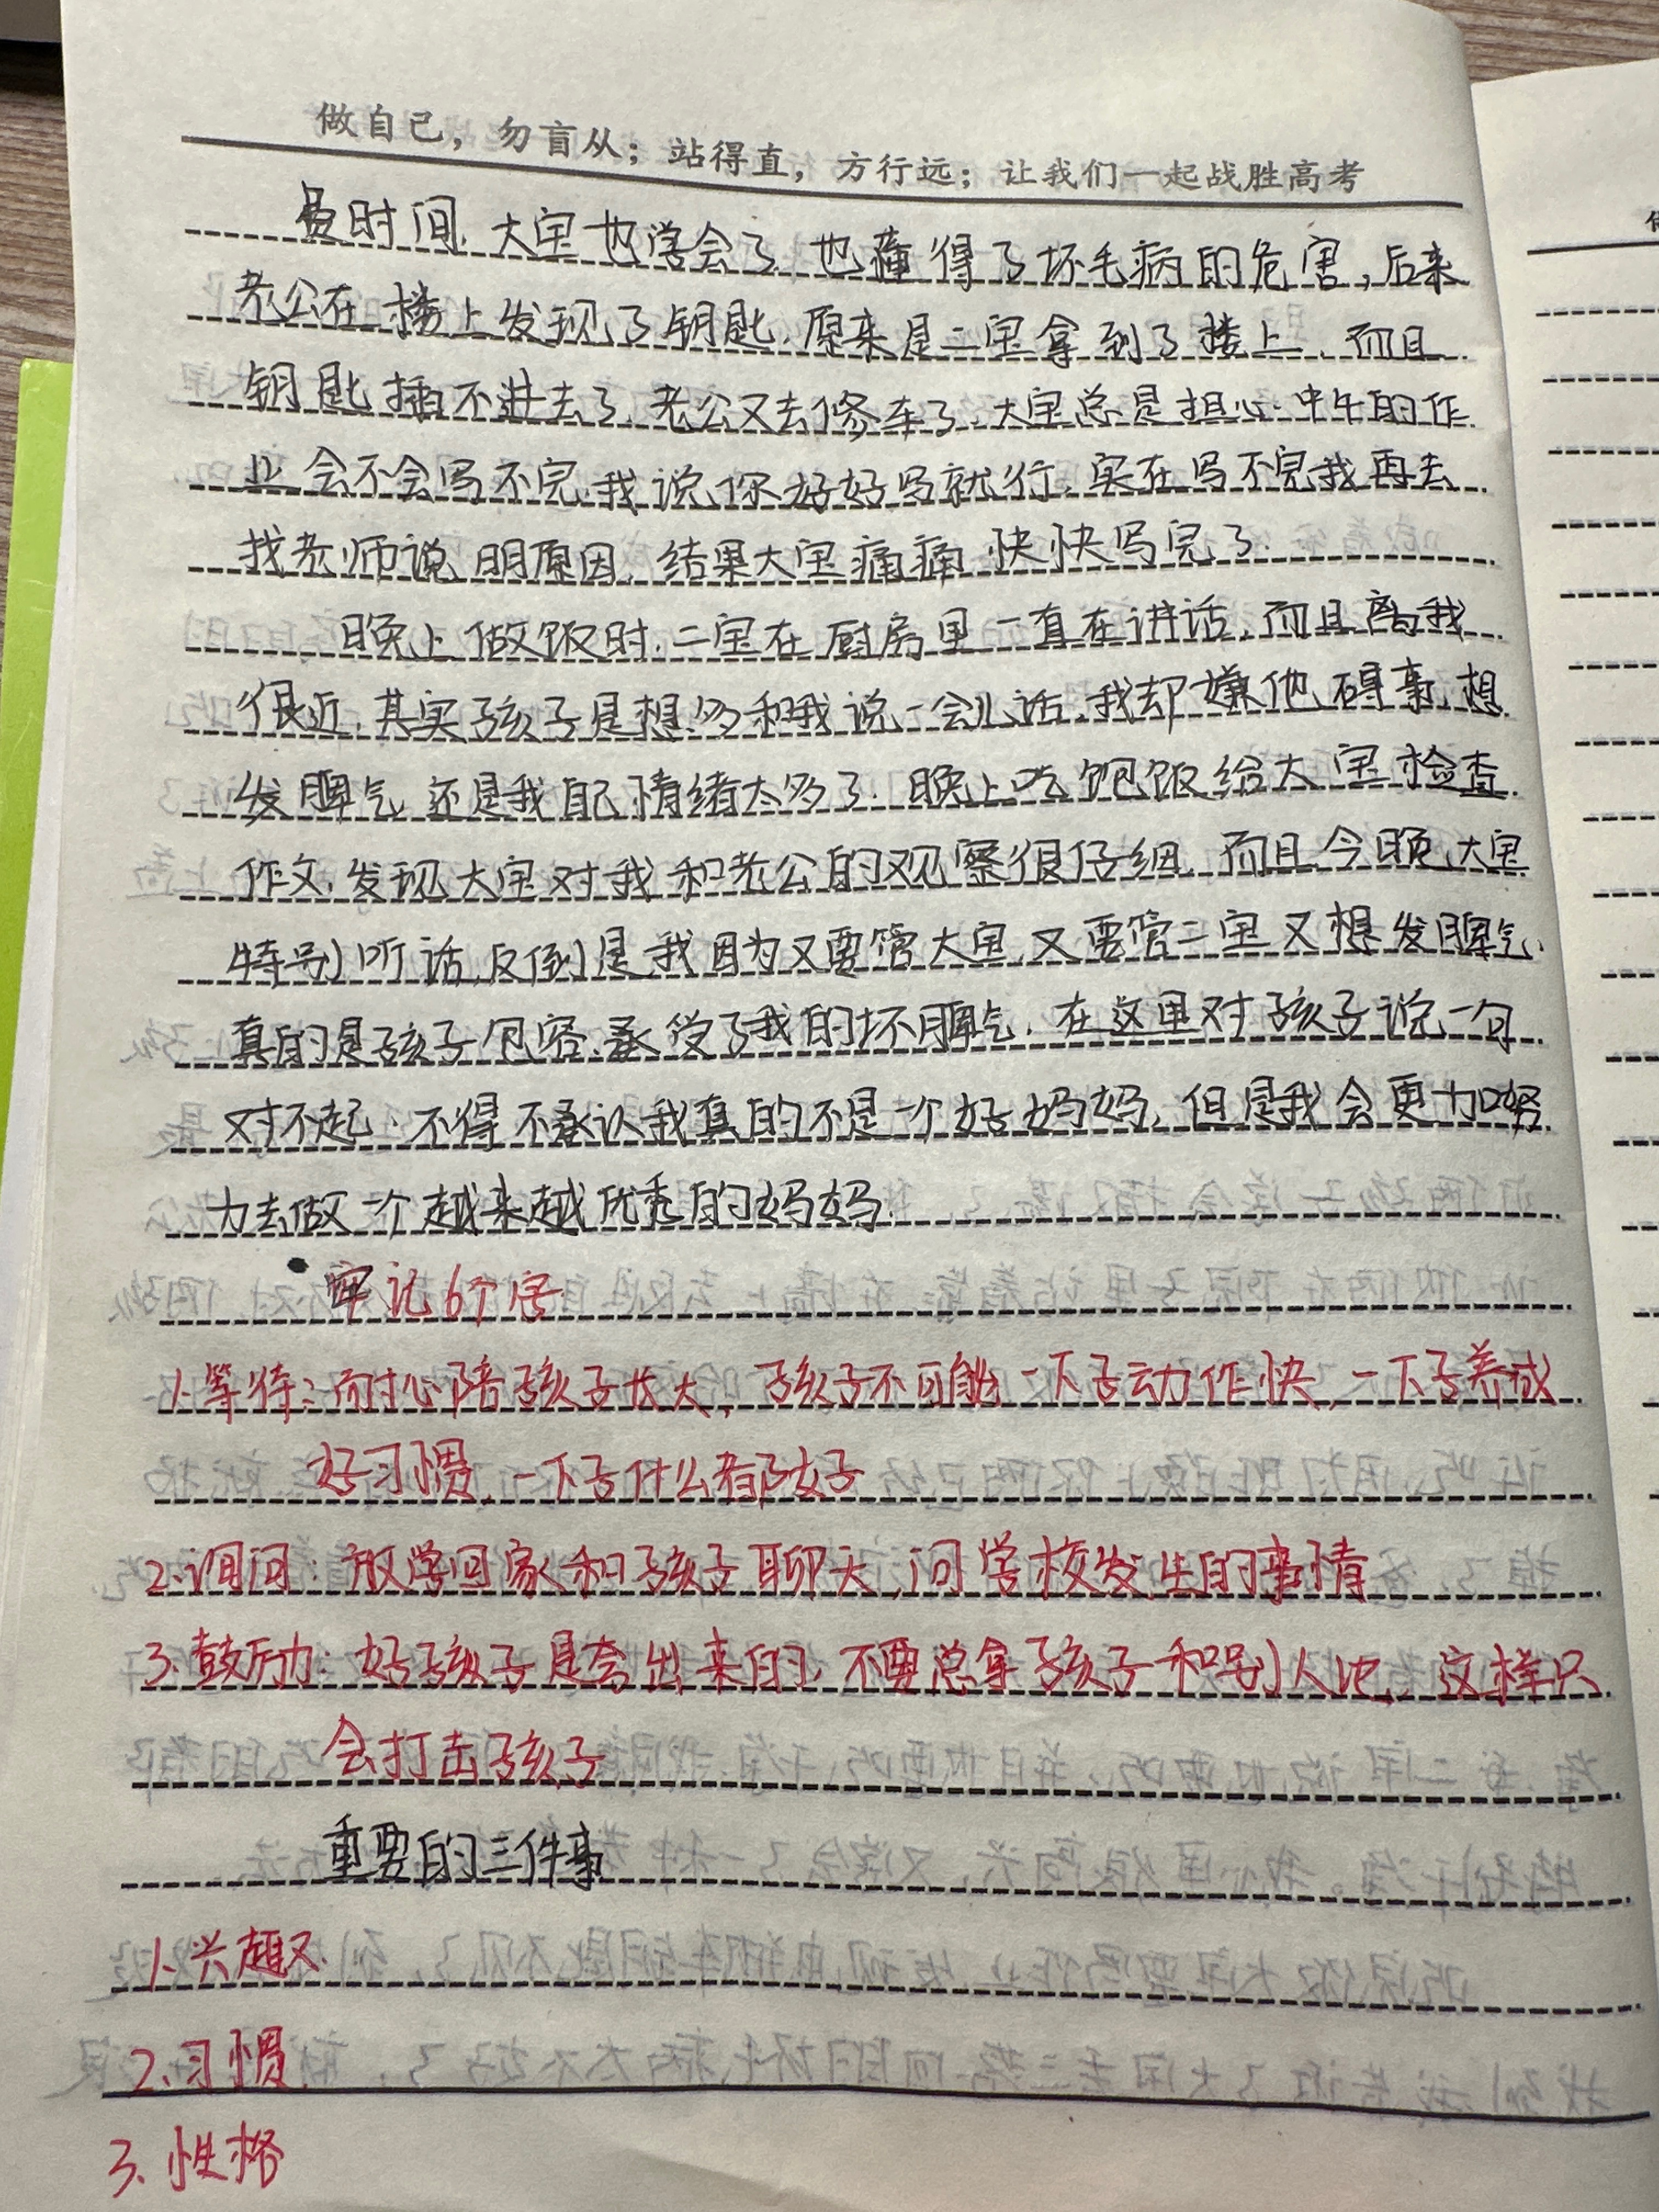 做自己，勿盲从；站得直，方行远；让我们一起战胜高考
长时间，大宝也学会了，也懂得了坏毛病的危害，后来
老公在楼上发现了钥匙，原来是二宝拿到了楼上，而且
钥匙插不进去了，老公又去修车了，大宝总是担心中午的作
业会不会写不完，我说你好好写就行，实在写不完我再去
找老师说明原因，结果大宝痛痛快快写完了.
晚上做饭时，二宝在厨房里一直在讲话，而且离我
很近，其实孩子是想多和我说一会儿话，我却嫌他碍事，想
发脾气，还是我自己情绪太多了.晚上吃饱饭给大宝检查
作文，发现大宝对我和老公的观察很仔细，而且今晚大宝
特别听话，反倒是我因为又要管大宝，又要管二宝又想发脾气，
真的是孩子包容、承受了我的坏脾气.在这里对孩子说一句
对不起.不得不承认我真的不是一个好妈妈，但是我会更加努
力去做一个越来越优秀的妈妈.
牢记6个字
1.等待：耐心陪孩子长大，孩子不可能一下子动作快，一下子养成
好习惯，一下子什么都好
2.询问：放学回家和孩子聊天，问学校发生的事情
3.鼓励：好孩子是夸出来的，不要总拿孩子和别人比，这样只
会打击孩子
重要的三件事
1.兴趣
2.习惯
3.性格